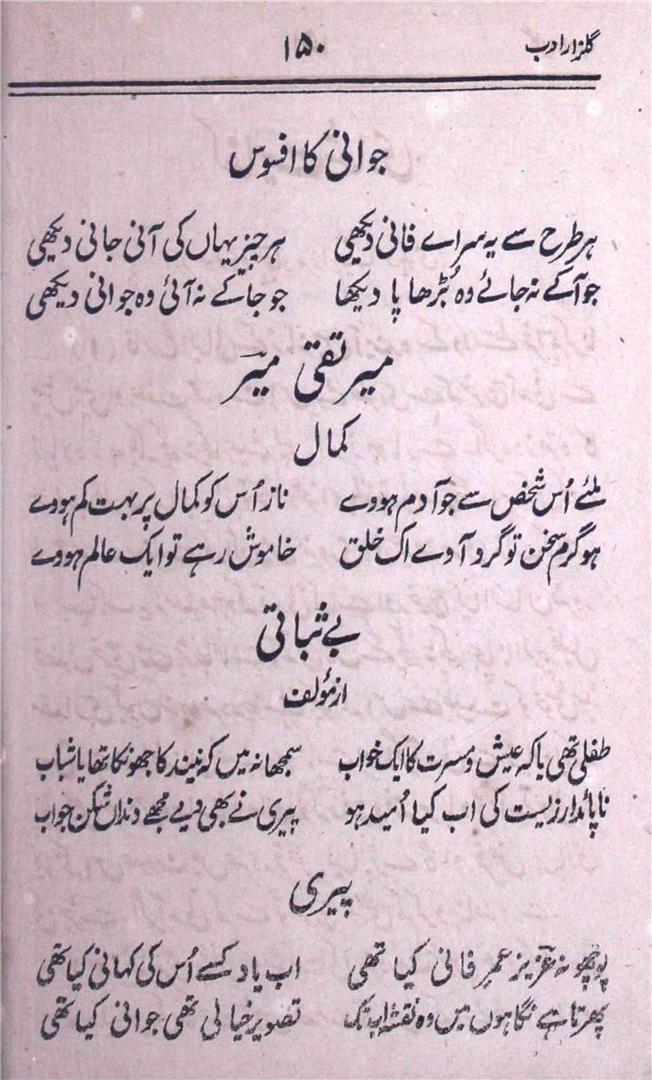 گلزار ادب ۱۵۰
جوانی کا افسوس
ہر طرح سے یہ سراے فانی دیکھی ہر چیز یہاں کی آنی جانی دیکھی
جو آکے نہ جائے وہ بُڑھاپا دیکھا جو جاکے نہ آئی وہ جوانی دیکھی
میر تقی میرؔ
کمال
ملئے اُس شخص سے جو آدم ہووے ناز اُس کو کمال پر بہت کم ہووے
ہو گرم سخن تو گرد آوے اک خلق خاموش رہے تو ایک عالم ہووے
بے ثباتی
از مؤلف
طفلی تھی یا کہ عیش و مسرت کا ایک خواب سمجھا نہ میں کہ نیند کا جھونکا تھا یا شباب
ناپائدار زیست کی اب کیا اُمید ہو پیری نے بھی دیے مجھے دنداں شکن جواب
پیری
پوچھو نہ عزیز عمرِ فانی کیا تھی اب یاد کسے اُس کی کہانی کیا تھی
پھرتا ہے نگاہوں میں وہ نقشہ اب تک تصویر خیالی تھی جوانی کیا تھی